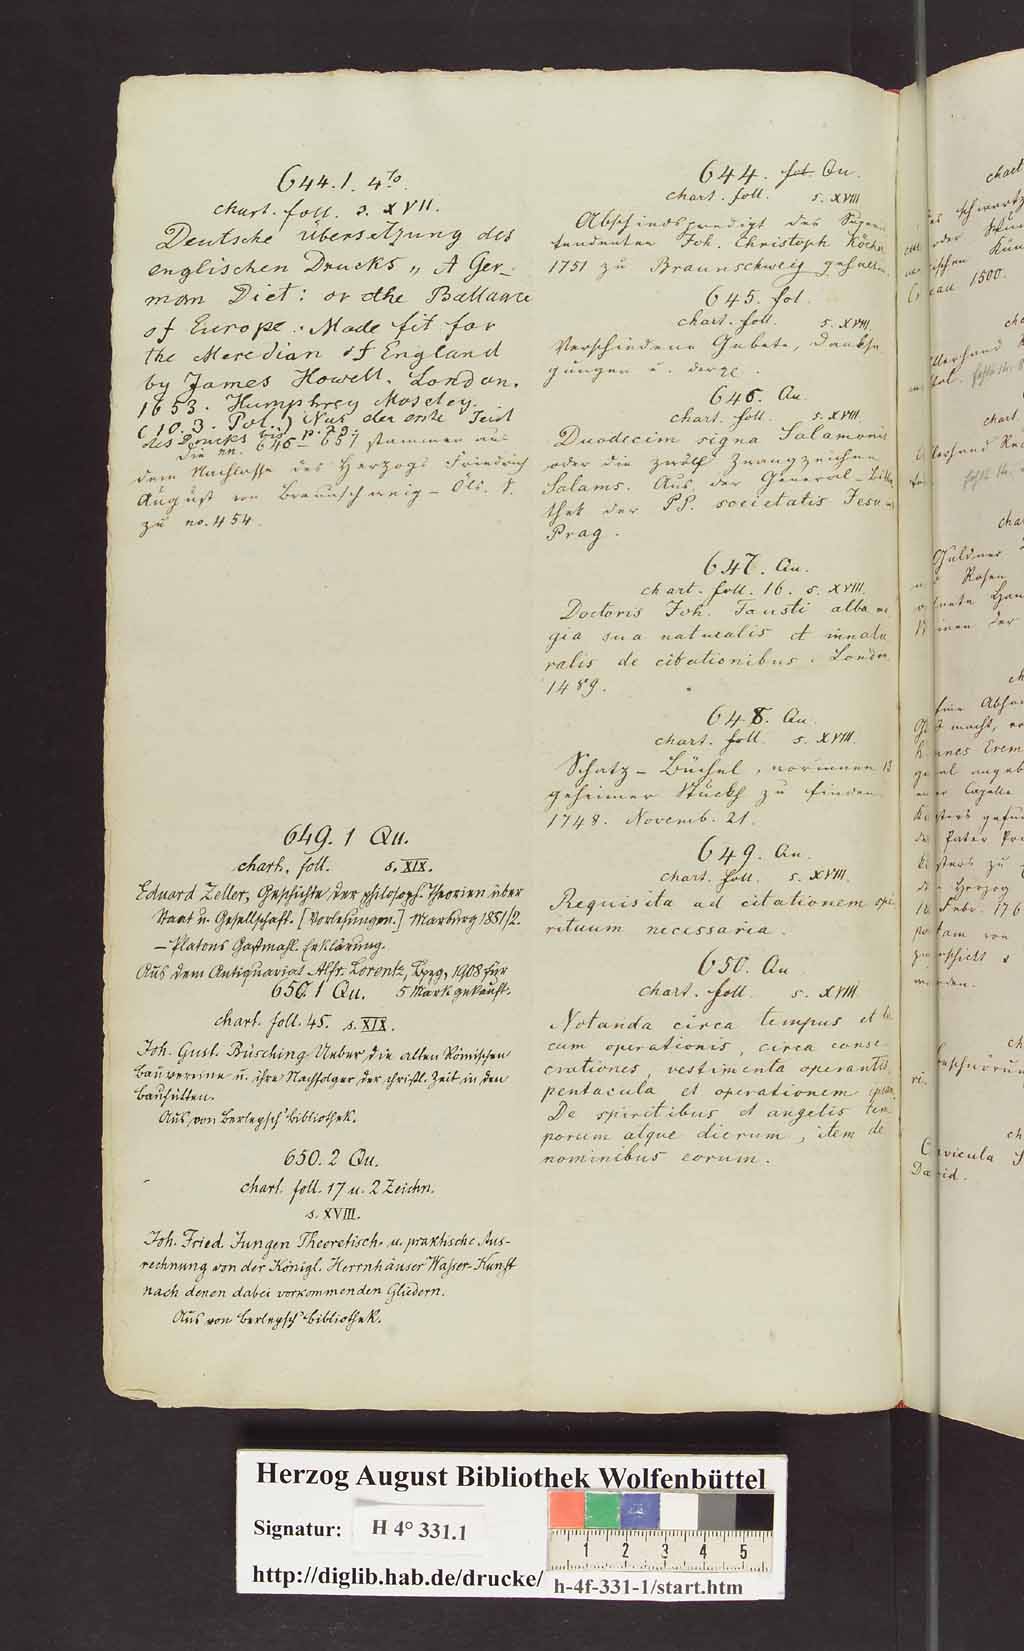 644.1. 4to.
chart. foll. s. XVII.
Deutsche Übersetzung des
englischen Drucks „A Ger-
man Diet: or the Ballance
of Europe. Made fit for
the Meredian of England
by James Howell. London.
1653. Humphrey Moseley.
(10. 3. Pol.) Nur der erste Teil
des Drucks bis p. 79.
Die nn. 646–657 stammen aus
dem Nachlasse des Herzogs Friedrich
August von Braunschweig-Öls. S.
zu no. 454.
649. 1 Qu.
chart. foll. s. XIX.
Eduard Zeller, Geschichte der philosoph. Theorien über
Staat u. Gesellschaft. [Vorlesungen.] Marburg 1851/2.
— Platons Gastmahl. Erklärung.
Aus dem Antiquariat Alfr. Lorentz, Lpzg, 1908 für
5 Mark gekauft.
650. 1 Qu.
chart. foll. 45. s. XIX.
Joh. Gust. Büsching Ueber die alten Römischen
Bauvereine u. ihre Nachfolger der christl. Zeit in den
Bauhütten.
Aus von Berlepsch' Bibliothek.
650. 2 Qu.
chart. foll. 17 u. 2 Zeichn.
s. XVIII.
Joh. Fried. Jungen Theoretisch- u. praktische Aus-
rechnung von der Königl. Herrnhäuser Wasser-Kunst
nach denen dabei vorkommenden Gliedern.
Aus von Berlepsch' Bibliothek.
644. fol. Qu.
chart. foll. s. XVIII
Abschiedspredigt des Superin
tendenten Joh. Christoph Köcher
1751 zu Braunschweig gehalten.
645. fol.
chart. foll. s. XVIII.
Verschiedene Gebete, Danksa
gungen u. dergl.
646. Qu.
chart. foll. s. XVIII.
Duodecim signa Salamonis
oder die zwölf Zwangzeichen
Salams. Aus der General-Biblio
thek der PP. societatis Jesu
Prag.
647. Qu.
chart. foll. 16. s. XVIII.
Doctoris Joh. Fausti alba ma
gia sua naturalis et innatu
ralis de citationibus. London
1489.
648. Qu.
chart. foll. s. XVIII.
Schatz-Büchel, worinnen 13
geheimer Stück zu finden
1748. Novemb. 21.
649. Qu.
chart. foll. s. XVIII.
Requisita ad citationem spi
rituum necessaria.
650. Qu
chart. foll. s. XVIII
Notanda circa tempus et lo
cum operationis, circa conse
crationes, vestimenta operantis,
pentacula et operationem
De spiritibus et angelis tem
porum atque dierum, item de
nominibus eorum.
Herzog August Bibliothek Wolfenbüttel
Signatur: H 4° 331.1
http://diglib.hab.de/drucke/ h-4f-331-1/start.htm
1 2 3 4 5